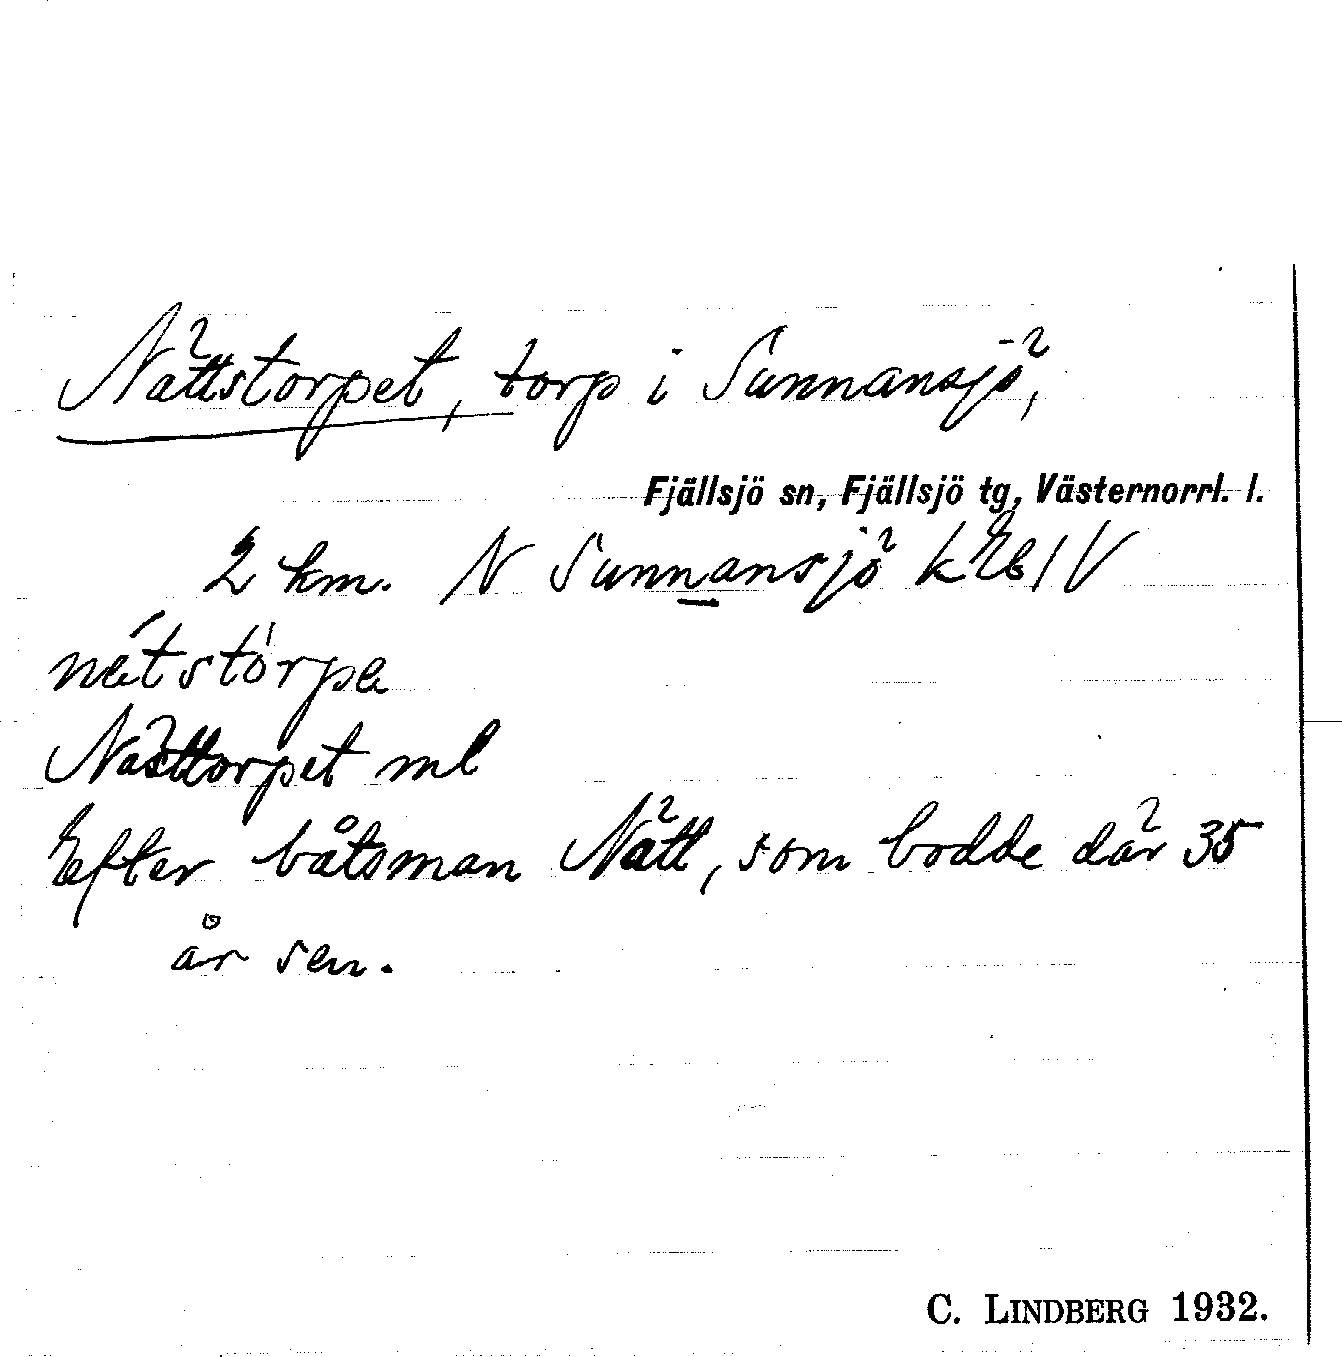 Nättstorpet, torp i Sunnansjö,
Fjällsjö sn, Fjällsjö tg, Västernorrl. l.
2 km. N Sunnansjö k
nätstòrpa
Nästtorpet ml
Efter båtsman Nätt, som bodde där 35
år sen.
C. LINDBERG 1932.